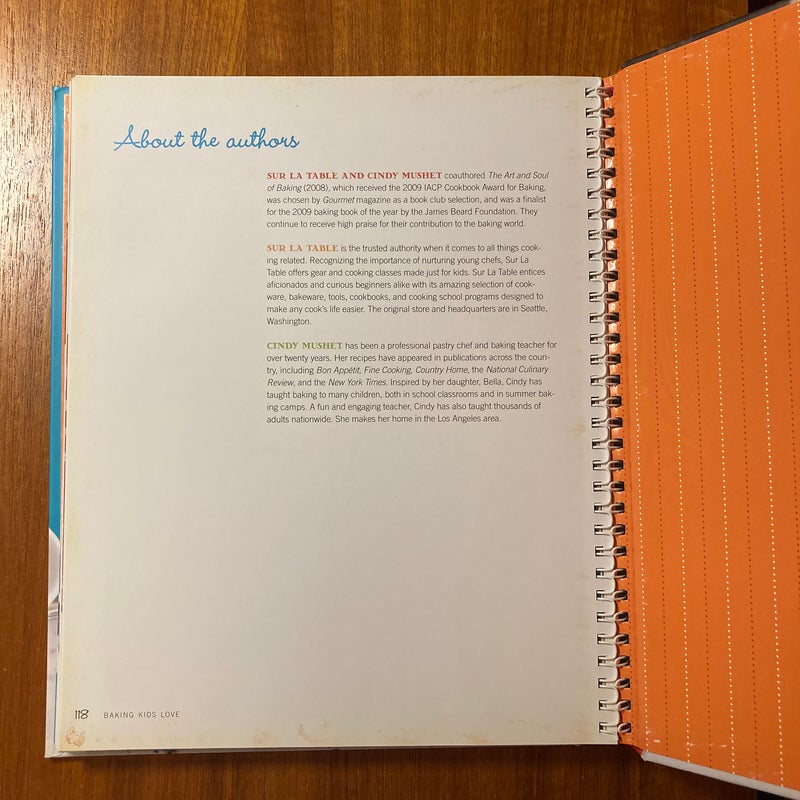 About the authors
SUR LA TABLE AND CINDY MUSHET coauthored The Art and Soul
of Baking (2008), which received the 2009 IACP Cookbook Award for Baking,
was chosen by Gourmet magazine as a book club selection, and was a finalist
for the 2009 baking book of the year by the James Beard Foundation. They
continue to receive high praise for their contribution to the baking world.
SUR LA TABLE is the trusted authority when it comes to all things cook-
ing related. Recognizing the importance of nurturing young chefs, Sur La
Table offers gear and cooking classes made just for kids. Sur La Table entices
aficionados and curious beginners alike with its amazing selection of cook-
ware, bakeware, tools, cookbooks, and cooking school programs designed to
make any cook's life easier. The original store and headquarters are in Seattle,
Washington.
CINDY MUSHET has been a professional pastry chef and baking teacher for
over twenty years. Her recipes have appeared in publications across the coun-
try, including Bon Appétit, Fine Cooking, Country Home, the National Culinary
Review, and the New York Times. Inspired by her daughter, Bella, Cindy has
taught baking to many children, both in school classrooms and in summer bak-
ing camps. A fun and engaging teacher, Cindy has also taught thousands of
adults nationwide. She makes her home in the Los Angeles area.
118 BAKING KIDS LOVE